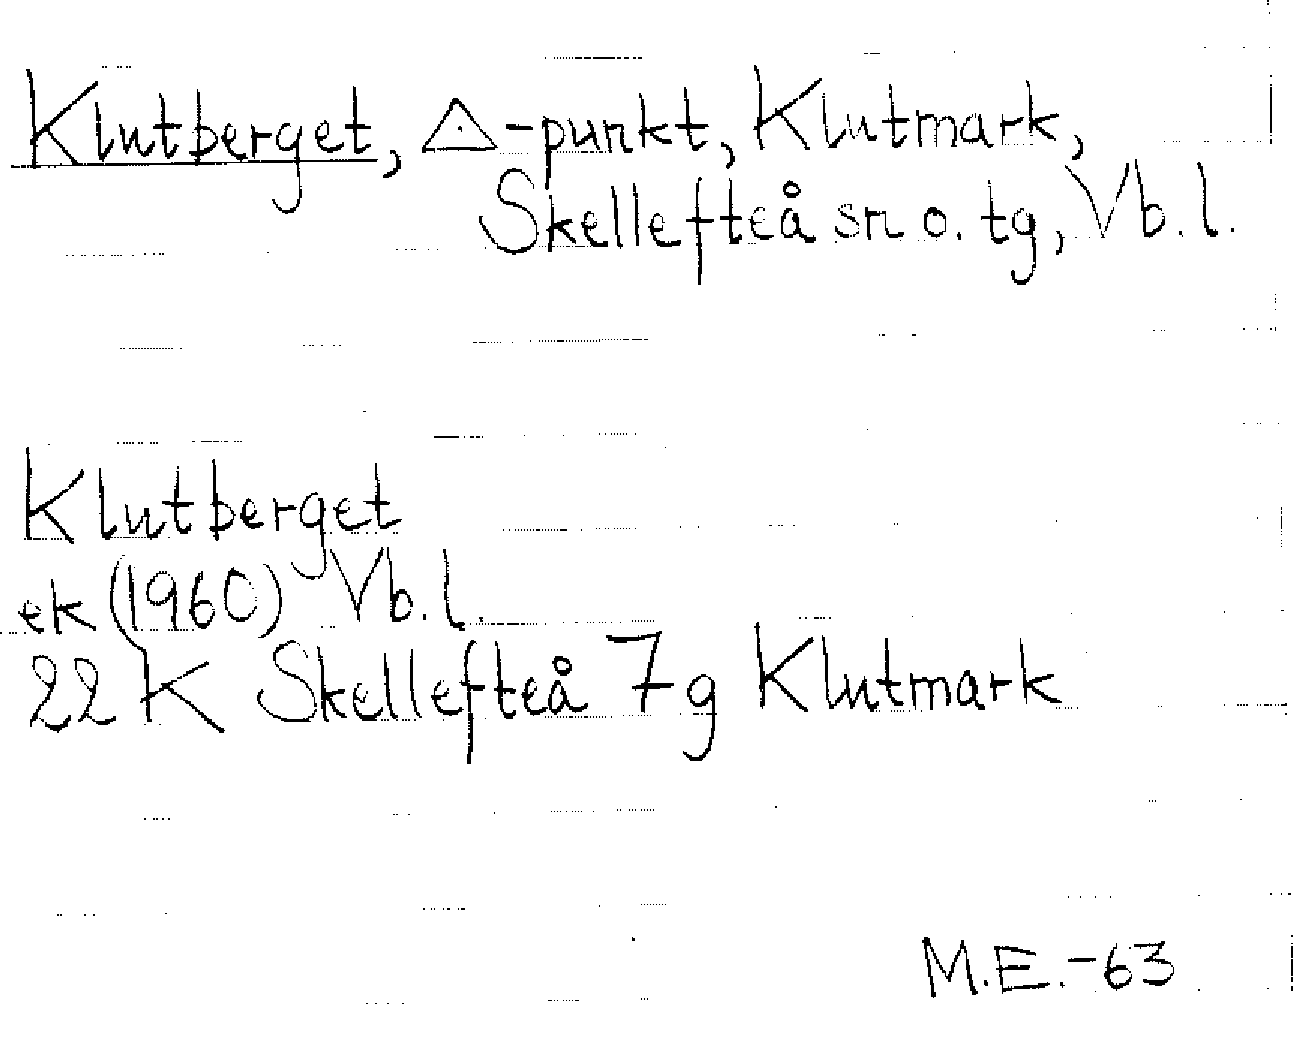 Klutberget, △-punkt, Klutmark,
Skellefteå sn o. tg, Vb. l.
Klutberget
ek (1960) Vb. l.
22 K Skellefteå 7g Klutmark
M.E.-63